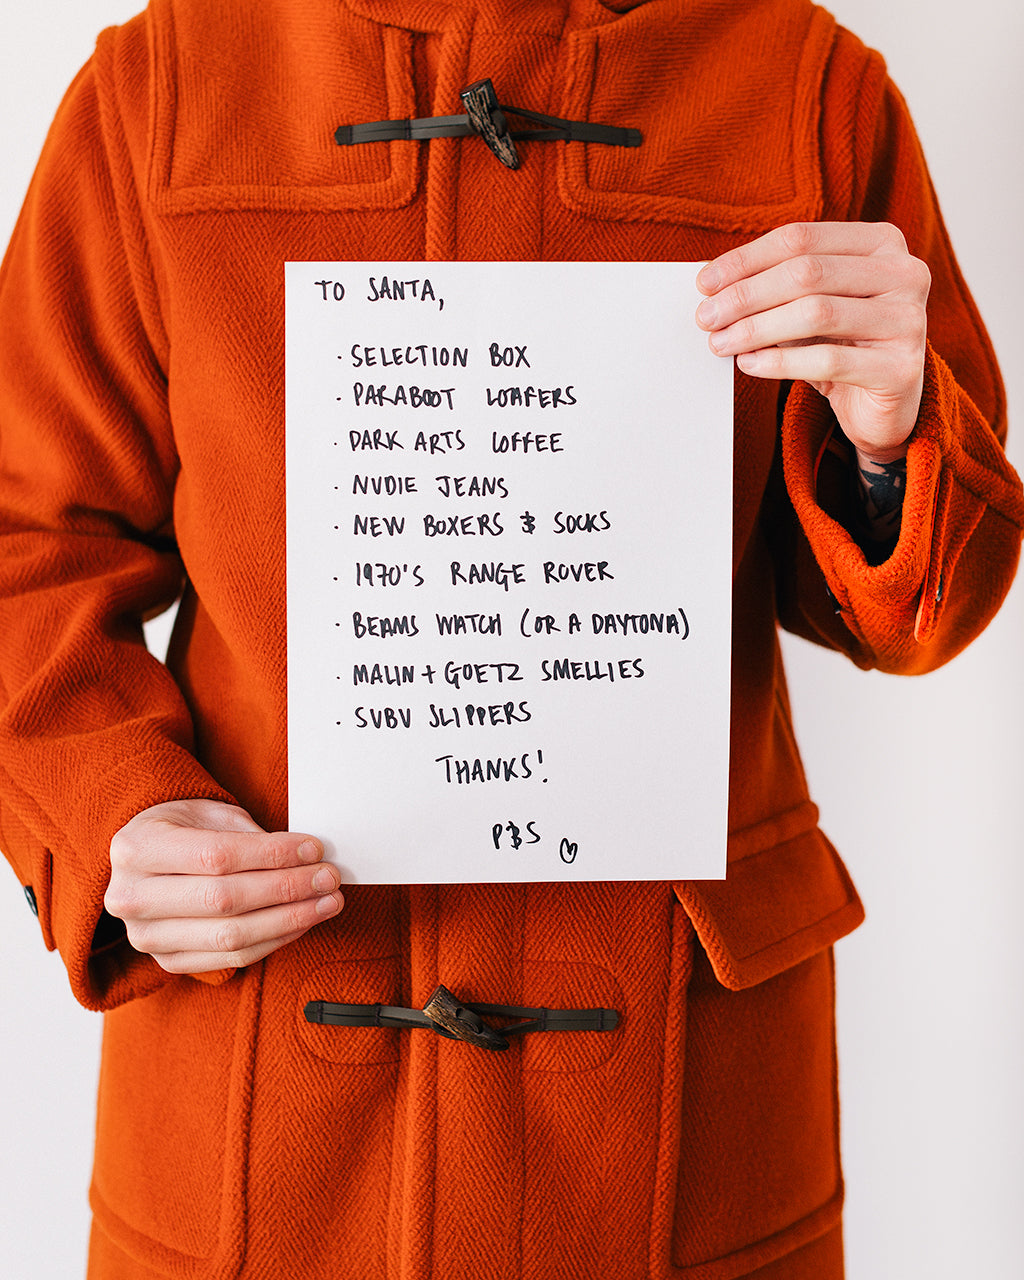 TO SANTA,
· SELECTION BOX
· PARABOOT LOAFERS
· DARK ARTS COFFEE
· NUDIE JEANS
· NEW BOXERS & SOCKS
· 1970'S RANGE ROVER
· BEAMS WATCH (OR A DAYTONA)
· MALIN + GOETZ SMELLIES
· SUBU SLIPPERS
THANKS!
P&S ♡